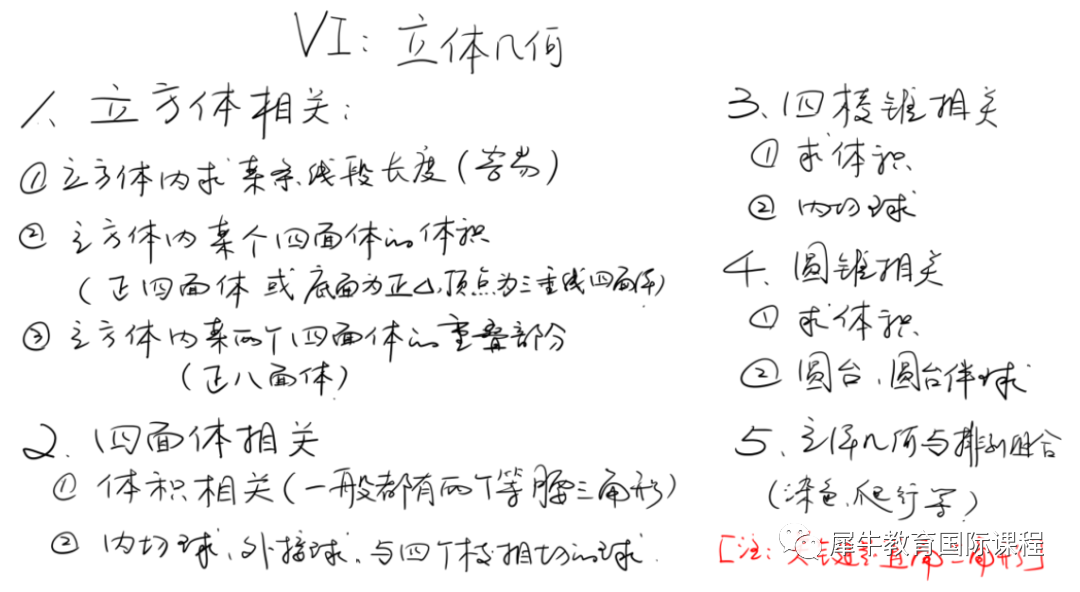 VI: 立体几何
1、立方体相关:
①立方体内求某条线段长度(容易)
② 立方体内某个四面体的体积
(正四面体 或 底面为正△,顶点为三垂线四面体)
③ 立方体内某两个四面体的重叠部分
(正八面体)
2. 四面体相关
① 体积相关(一般都有两个等腰三角形)
② 内切球、外接球、与四个棱相切的球.
3、四棱锥相关
① 求体积
② 内切球
4、圆锥相关
① 求体积
② 圆台、圆台伴球
5、立体几何与排列组合
(染色、爬行等)
[注: 关键参直角三角形]
犀牛教育国际课程